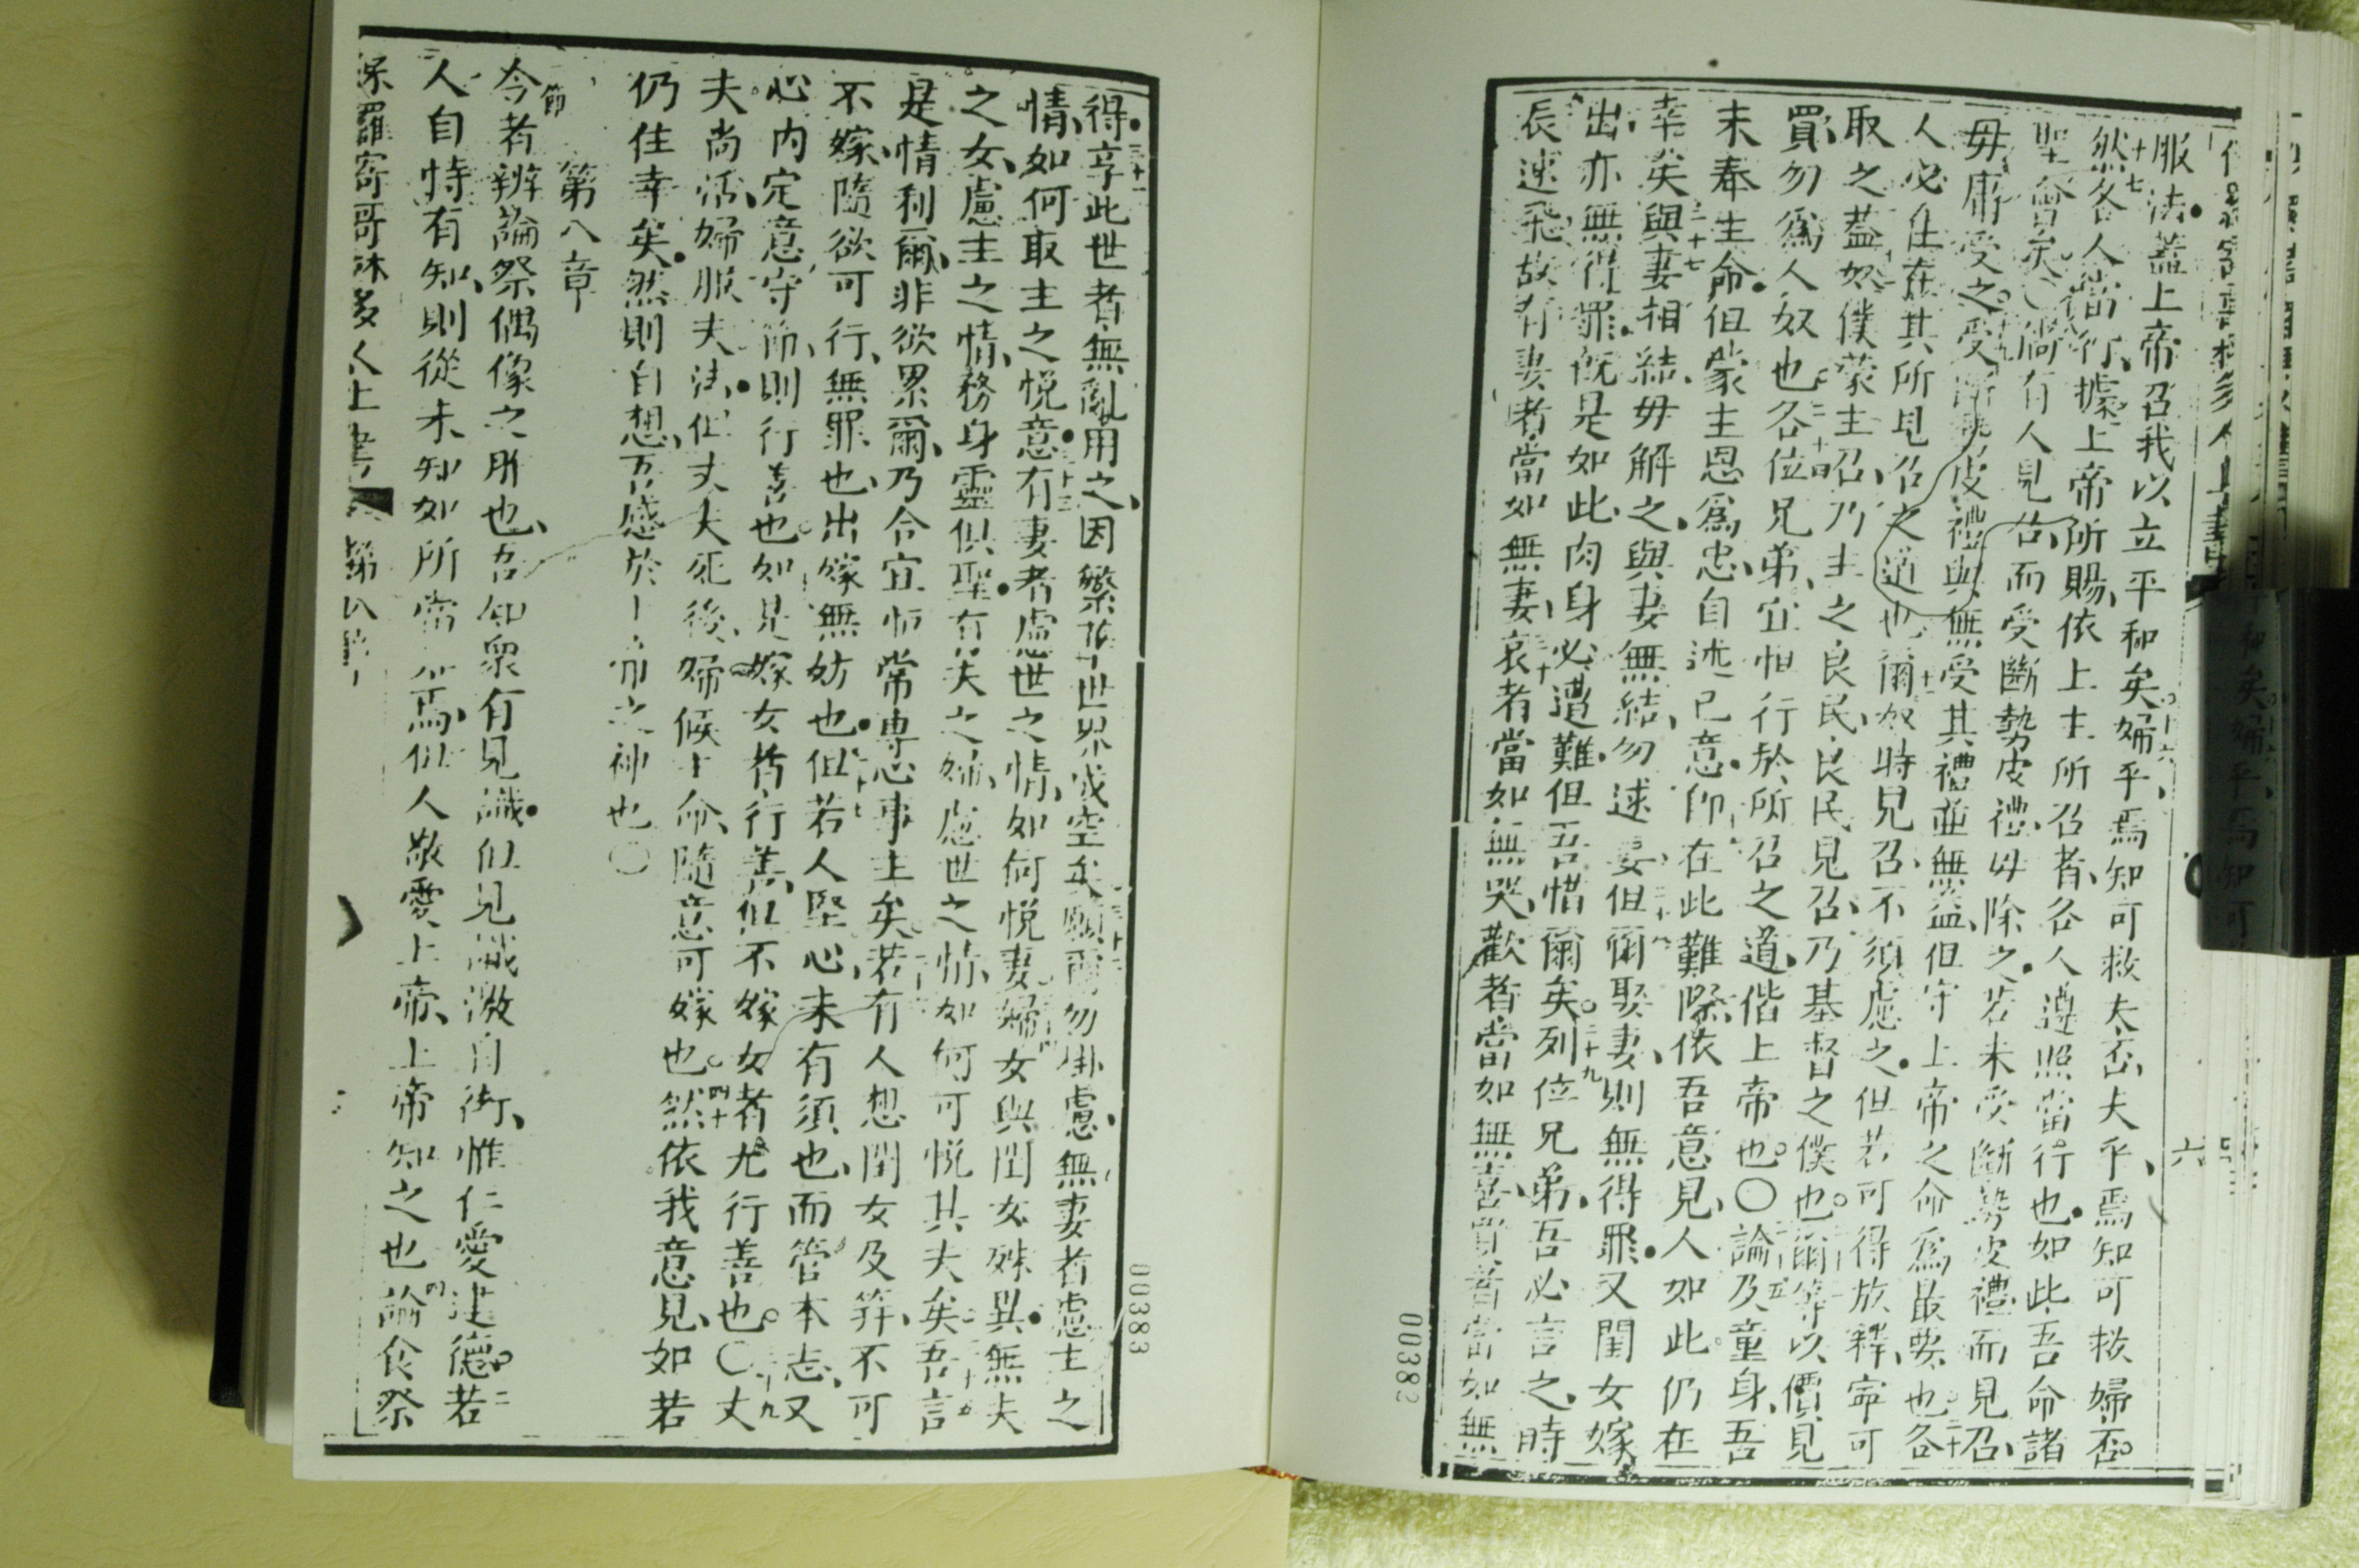 服法蓋上帝召我以立平和矣婦乎焉知可救夫否夫乎焉知可救婦否
然各人當行據上帝所賜依上主所召者各人遵照當行也如此吾命諸
聖會矣〇倘有人見召而受斷勢皮禮毋除之若未受斷勢皮禮而見召
毋庸受之受斷勢皮禮與無受其禮並無益但守上帝之命為最要也各
人必住在其所見召之道也爾奴時見召不須慮之但若可得放釋寧可
取之蓋奴僕蒙主召乃主之良民良民見召乃基督之僕也爾等以價見
買勿為人奴也各位兄弟宜怛行於所召之道偕上帝也〇論及童身吾
未奉主命但蒙主恩為忠自述己意卽在此難際依吾意見人如此仍在
幸矣與妻相結毋解之與妻無結勿逑妻但爾娶妻則無得罪又閨女嫁
出亦無得罪旣是如此肉身必遭難但吾惜爾矣列位兄弟吾必言之時
辰速飛故有妻者當如無妻哀者當如無哭歡者當如無喜買者當如無
六
00382
得享此世者無亂用之因繁花世界成空矣願爾勿掛慮無妻者慮主之
情如何取主之悅意有妻者慮世之情如何悅妻婦女與閨女殊異無夫
之女慮主之情務身靈俱聖有夫之婦慮世之情如何可悅其夫矣吾言
是情利爾非欲累爾乃合宜怲常專心事主矣若有人想閨女及筓不可
不嫁隨欲可行無罪也出嫁無妨也但若人堅心未有須也而管本志又
心內定意守節則行善也如是嫁女者行善但不嫁女者尤行善也〇丈
夫尚活婦服夫法但丈夫死後婦候主命隨意可嫁也然依我意見如若
仍住幸矣然則自想吾感於上帝之神也〇
第八章
今者辨論祭偶像之用也吾知衆有見識但見識激自衒惟仁愛建德若
人自恃有知則從未知如所當知焉但人敬愛上帝上帝知之也論食祭
保羅寄哥林多人上書 第八章
00383